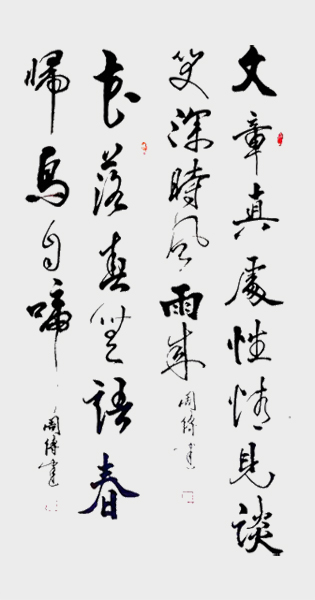 文章真處性情見談
笑深時風雨來
周 書
花落春無語春
歸鳥自啼
周